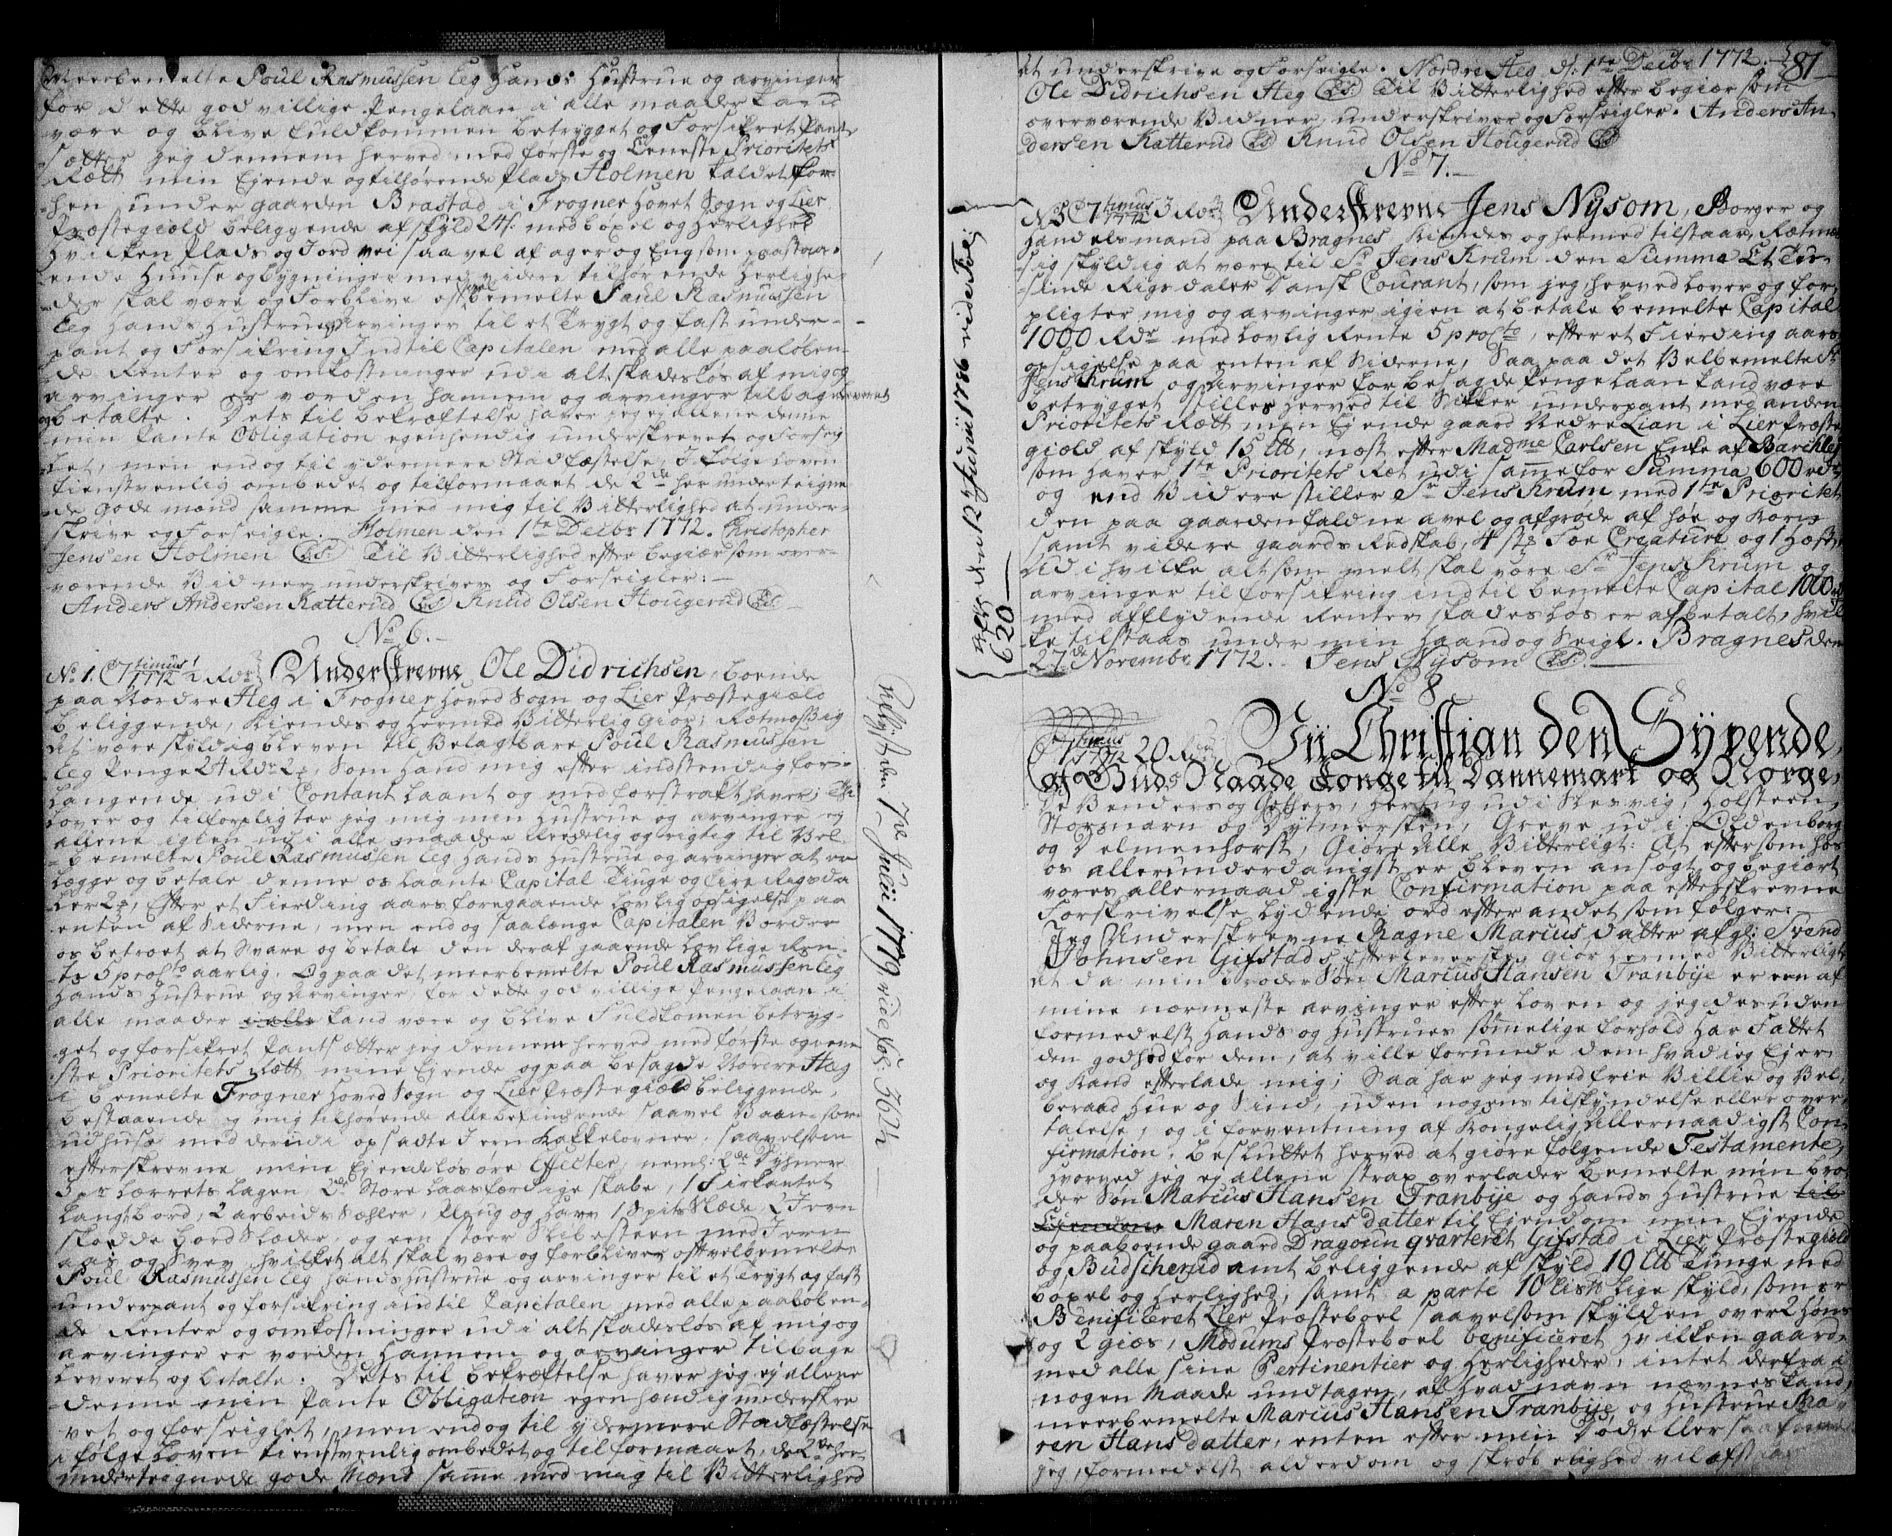 Meerbemelte Poul Rasmussen Eeg Hands Hustrue og arvinger
for dette godvillige Pengelaan i alle maader kand
være og blive fuldkommen betrygget og Forsikret Pant-
sætter jeg dennem herved med første og Eeneste Prioritets
Rætt min Ejende og tilhørende Plads Holmen kaldet for-
hen under gaarden Brastad i Frogner Hovet Sogn og Lier
Præstegield beliggende af skyld 24 s. med bøxel og Herlighed
Hvilken Plads og Jordvei saavel af ager og Eng som paastaa-
ende Huuse og bygninger med videre tilhørende Herlighe-
der skal være og Forblive oftbemelte Paul Rasmussen
Eeg Hands Hustrue og Arvinger til et Trygt og fast under-
pant og Forsikring Indtil Capitalen med alle paaløben-
de Renter og omkostninger udi alt skadesløs af mig og
arvinger er vorden hannem og arvinger tilbage leveret
og betalte. Dets til bekræftelse haver jeg ej allene denne
min Pante Obligation egenhendig underskrevet og Forseig-
let, men endog til ydermere Stadfæstelse, J følge Loven
tienstvenlig ombedet og tilformaaet de 2de her underteigne-
de gode mænd samme med mig til Vitterlighed at under-
skrive og Forseigle. Holmen den 1te Decbr 1772. Christopher
Jensen Holmen (LS) Til Vitterlighed efter begiær som over-
værende Vidner underskriver og Forseigler:
Anders Andersen Katterud (LS) Knud Olsen Hougerud (LS)
No 6.
No 1. C 7timus 1772 1/2 Rdr Underskrevne Ole Didrichsen, boende
paa Nordre Heg i Frogner Hoved Sogn og Lier Præstegield
beliggende, Kiendes og hermed Vitterlig Giør; Rætmæssig
at være skyldig bleven til Velagtbare Poul Rasmussen
Eeg Penge 24 Rdr 2, som hand mig efter indstendig for-
langende udi Contant laant og med forstrakt haver; Thi
lover og tilforpligter jeg mig min Hustrue og arvinger ej
allene igien udi alle maader Ærlig og rigtig til Vel-
bemelte Poul Rasmussen Eeg Hands Hustrue og arvinger at er-
lægge og betale denne os laante Capital Tiuge og fire Rigsda-
ler 2, Efter et Fierding aars foregaaende lovlig opsigelse paa
enten af Siderne, men endog saalænge Capitalen Vorder
os betroet at Svare og betale den deraf gaaende lovlige Ren-
te 5 pro Cto aarlig. Og paa det meerbemelte Poul Rasmussen Eeg
Hands Hustrue og Arvinger, for dette godvillige Pengelaan i
alle maader i alle kand være og blive Fuldkomen betryg-
get og forsikret Pantsætter jeg dennem herved med første og eene-
ste Prioritets Rætt mine Ejende og paa besagde Nordre Heg
i bemelte Frogner Hoved Sogn og Lier Præstegield beliggende,
bestaaende og mig tilhørende alle befindende saavel Vaan- som
udhuse med derudi opsadte Jern Kakkelovner, saavelsom
efterskrevne mine Ejendeløsøre Effecter, neml: 2de Dyhner
3 ps Lærrets Lagen, 2de Store laasfærdige skabe, 1 Firkantet
Langt bord, 2 arbeids Sæhler, Ploug og Harv, 1 Spids Slæde, 2 Jern
skoede Hord Slæder, og een stoer Slibesteen med Jern
aas og Svev, Hvilket alt skal være og forblive oftvelbemelte
Poul Rasmussen Eeg Hands Hustrue og arvinger til et Trygt og fast
underpant og forsikring indtil Capitalen med alle paaløben-
de Renter og omkostninger udi alt skadesløs af mig og
arvinger er vorden Hannem og arvinger tilbage
leveret og betalte. Dets til bekræftelse haver jeg ej allene
denne min Pante Obligation egenhændig underskre-
vet og forseiglet, men endog til ydermere Stadfæstelse
i følge Loven tienstvenlig ombedet og tilformaaet, de 2de her-
undertegnede gode Mænd samme med mig til Vitterlighed
aflyst den 7de Julii 1779 vide fol: 362
aflæst den 12 Junii 1786 vide Fol:
620
at underskrive og Forseigle. Nordre Heg d: 1te Decbr 1772. 81
Ole Didrichsen Heg (LS) Til Vitterlighed efter begiær som
overværende Vidner, underskriver og Forseigler. Anders An-
dersen Katterud (LS) Knud Olsen Hougerud (LS)
No 7.
No 3 C 7timus 1772 3 Rdr Underskrevne Jens Nysom, Borger og
Handelsmand paa Bragnes, Kiendes og hermed tilstaar, Rætmæs-
sig skyldig at være til Sr Jens Krum den Summa Et Tu-
sinde Rigsdaler Dansk Courant, som jeg herved lover og for-
pligter mig og arvinger igien at betale bemelte Capital
1000 Rdr med lovlig Rente 5 pro Cto, efter et Fierding aars
opsigelse paa enten af Siderne, Saa paa det Velbemelte Sr
Jens Krum og Arvinger for besagde Pengelaan kand være
betrygget stilles herved til Sikker underpant med anden
Prioritets Rætt min Ejende gaard Nedre Lian i Lier Præste-
gield af skyld 15 Ltt, næst efter Madme Carlsen Enke af Barthley
som haver 1te Prioritets Ræt udi samme for Summa 600 Rdr
og end Videre stiller Sr Jens Krum med 1te Prioritet
den paa gaarden faldne avel og afgrøde af høe og Korn
samt videre gaards Redskab, 4 stk Foe Creature og 1 Hæst,
udi hvilke alt som melt skal være Sr Jens Krum og
arvinger til forsikring indtil bemelte Capital 1000 Rdr
med afflydende Renter skadesløs er afbetalt, hvil-
ke tilstaas under min Haand og Seigl. Bragnes den
27de Novembr 1772. Jens Nysom (LS)
No 8
C 7timus 1772 20 Rdr Vii Christian den Syvende,
af Guds Naade Konge til Dannemark og Norge,
De Venders og Gothers, Hertug udi Slesvig, Holsteen,
Stormarn og Dytmersken, Greve udi Oldenborg
og Delmenhorst, Giøre alle Vitterligt: At eftersom hos
os allerunderdanigst er bleven ansogt og begiært
vores allernaadigste Confirmation paa efterskrevne
Forskrivelse lydende ord efter andet som følger:
Jeg Underskrevne Ragne Marcus datter afgl: Svend
Johnsen Gifstads Efterleverske, giør hermed Vitterligt
at da min broder Søn Marcus Hansen Tranbye er een af
mine nærmeste arvinger efter Loven og jeg desuden
formedelst Hands og Hustrues sømmelige forhold har Fattet
den godhed for dem, at ville forunde dem hvad jeg Ejer
og kand efterlade mig; Saa har jeg med frie Villie og Vel-
beraad Hue og Sind, uden nogens tilskyndelse eller over-
talelse, og i forventning af Kongelig Allernaadigst Con-
firmation, besluttet herved at giøre følgende Testamente,
hvorved jeg ej allene strax overlader bemelte min bro-
der Søn Marcus Hansen Tranbye og Hands Hustrue til
Eiendom Maren Hans datter til Ejendom min Ejende
og paaboende gaard Dragoun qvarteret Gifstad i Lier Præstegield
og Budscherud amt beliggende af skyld 19 Ltt Tunge med
bøxel og Herlighed, samt a parte 10 Lisk lige skyld, som er
Benificeret Lier Præsteboel saavelsom skylden over 2 høns
og 2 giæs, Modums Præsteboel benificeret Hvilken gaard
med alle sine Pertinentier og Herligheder, intet derfra i
nogen Maade undtagen, af hvad navn nævnes kand,
meerbemelte Marcus Hansen Tranbye og Hustrue Ma-
ren Hans datter, enten efter min Død eller saasnart
jeg, formedelst alderdom og skrøbelighed vil afstaa